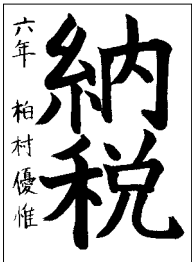 納税
六年 柏村優惟